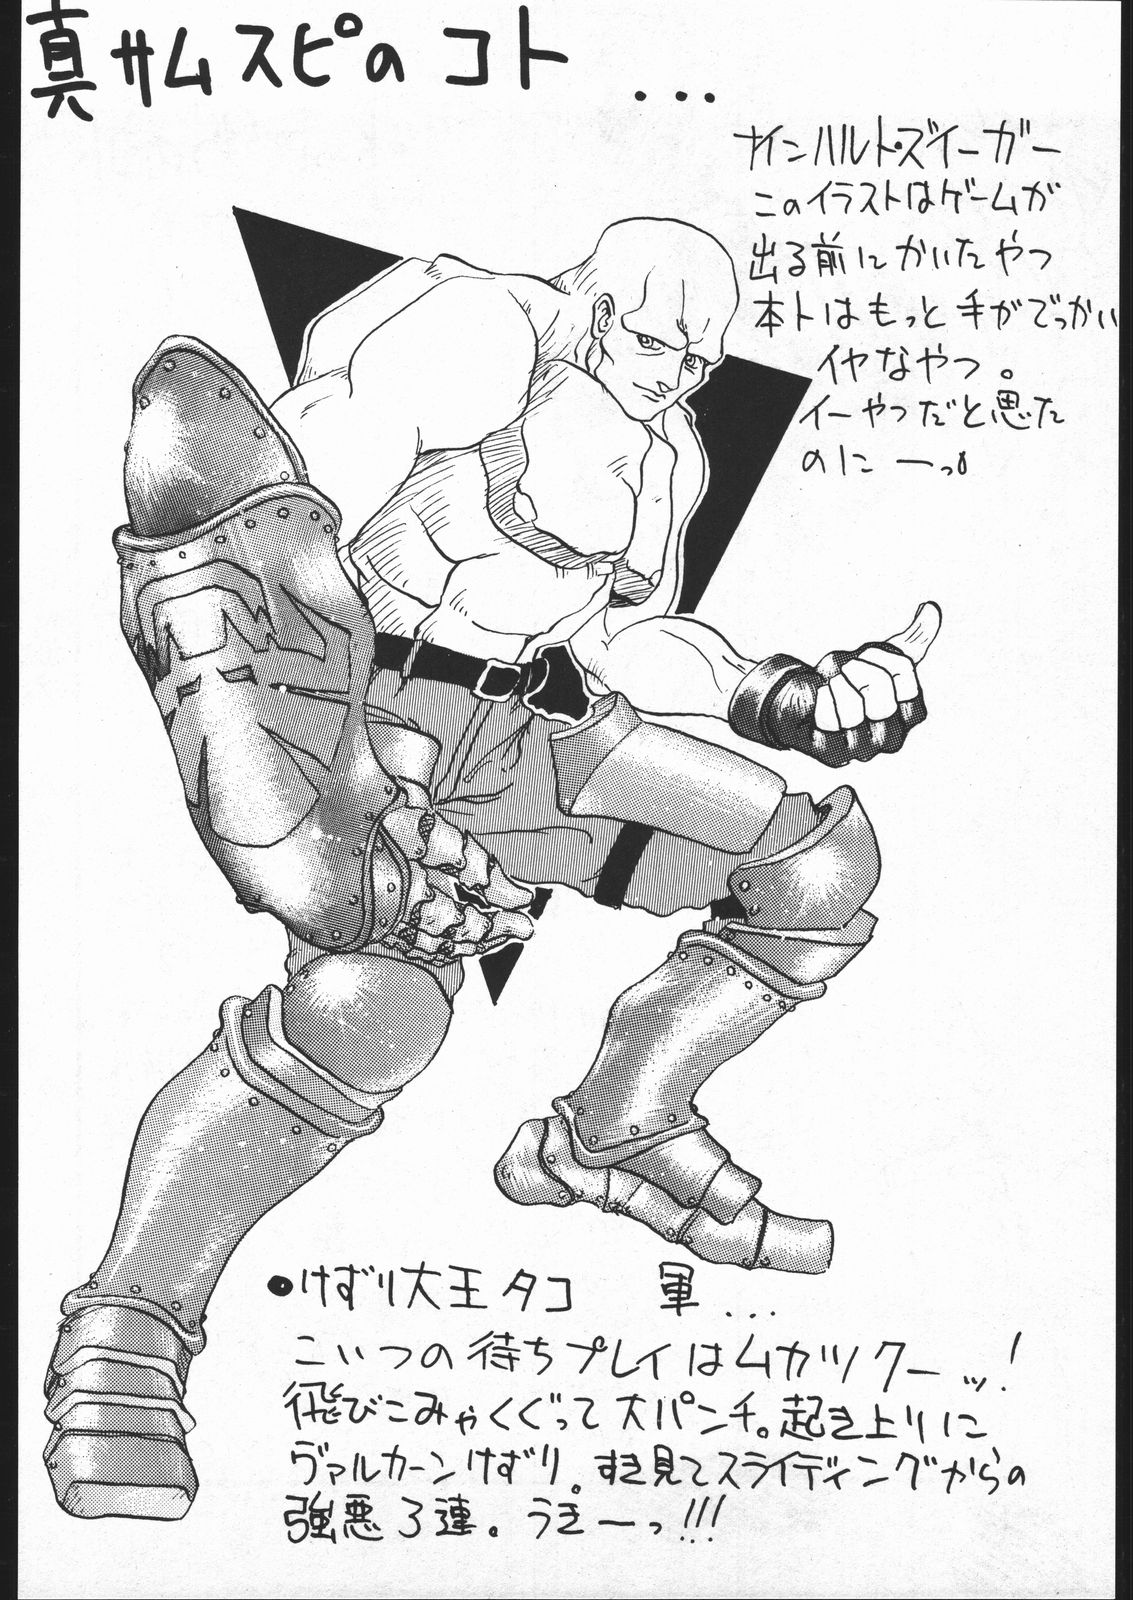 真サムスピのコト...
ナインハルト・ズィーガー
このイラストはゲームが
出る前にかいたやつ
本トはもっと手がでっかい
イヤなやつ。
イーやつだと思た
のにーっ。
●けずり大王タコ 軍...
こいつの待ちプレイはムカツクーッ!
飛びこみゃくぐって大パンチ。起き上りに
ヴァルカーンけずり。すき見てスライディングからの
強悪3連。うきーっ!!!